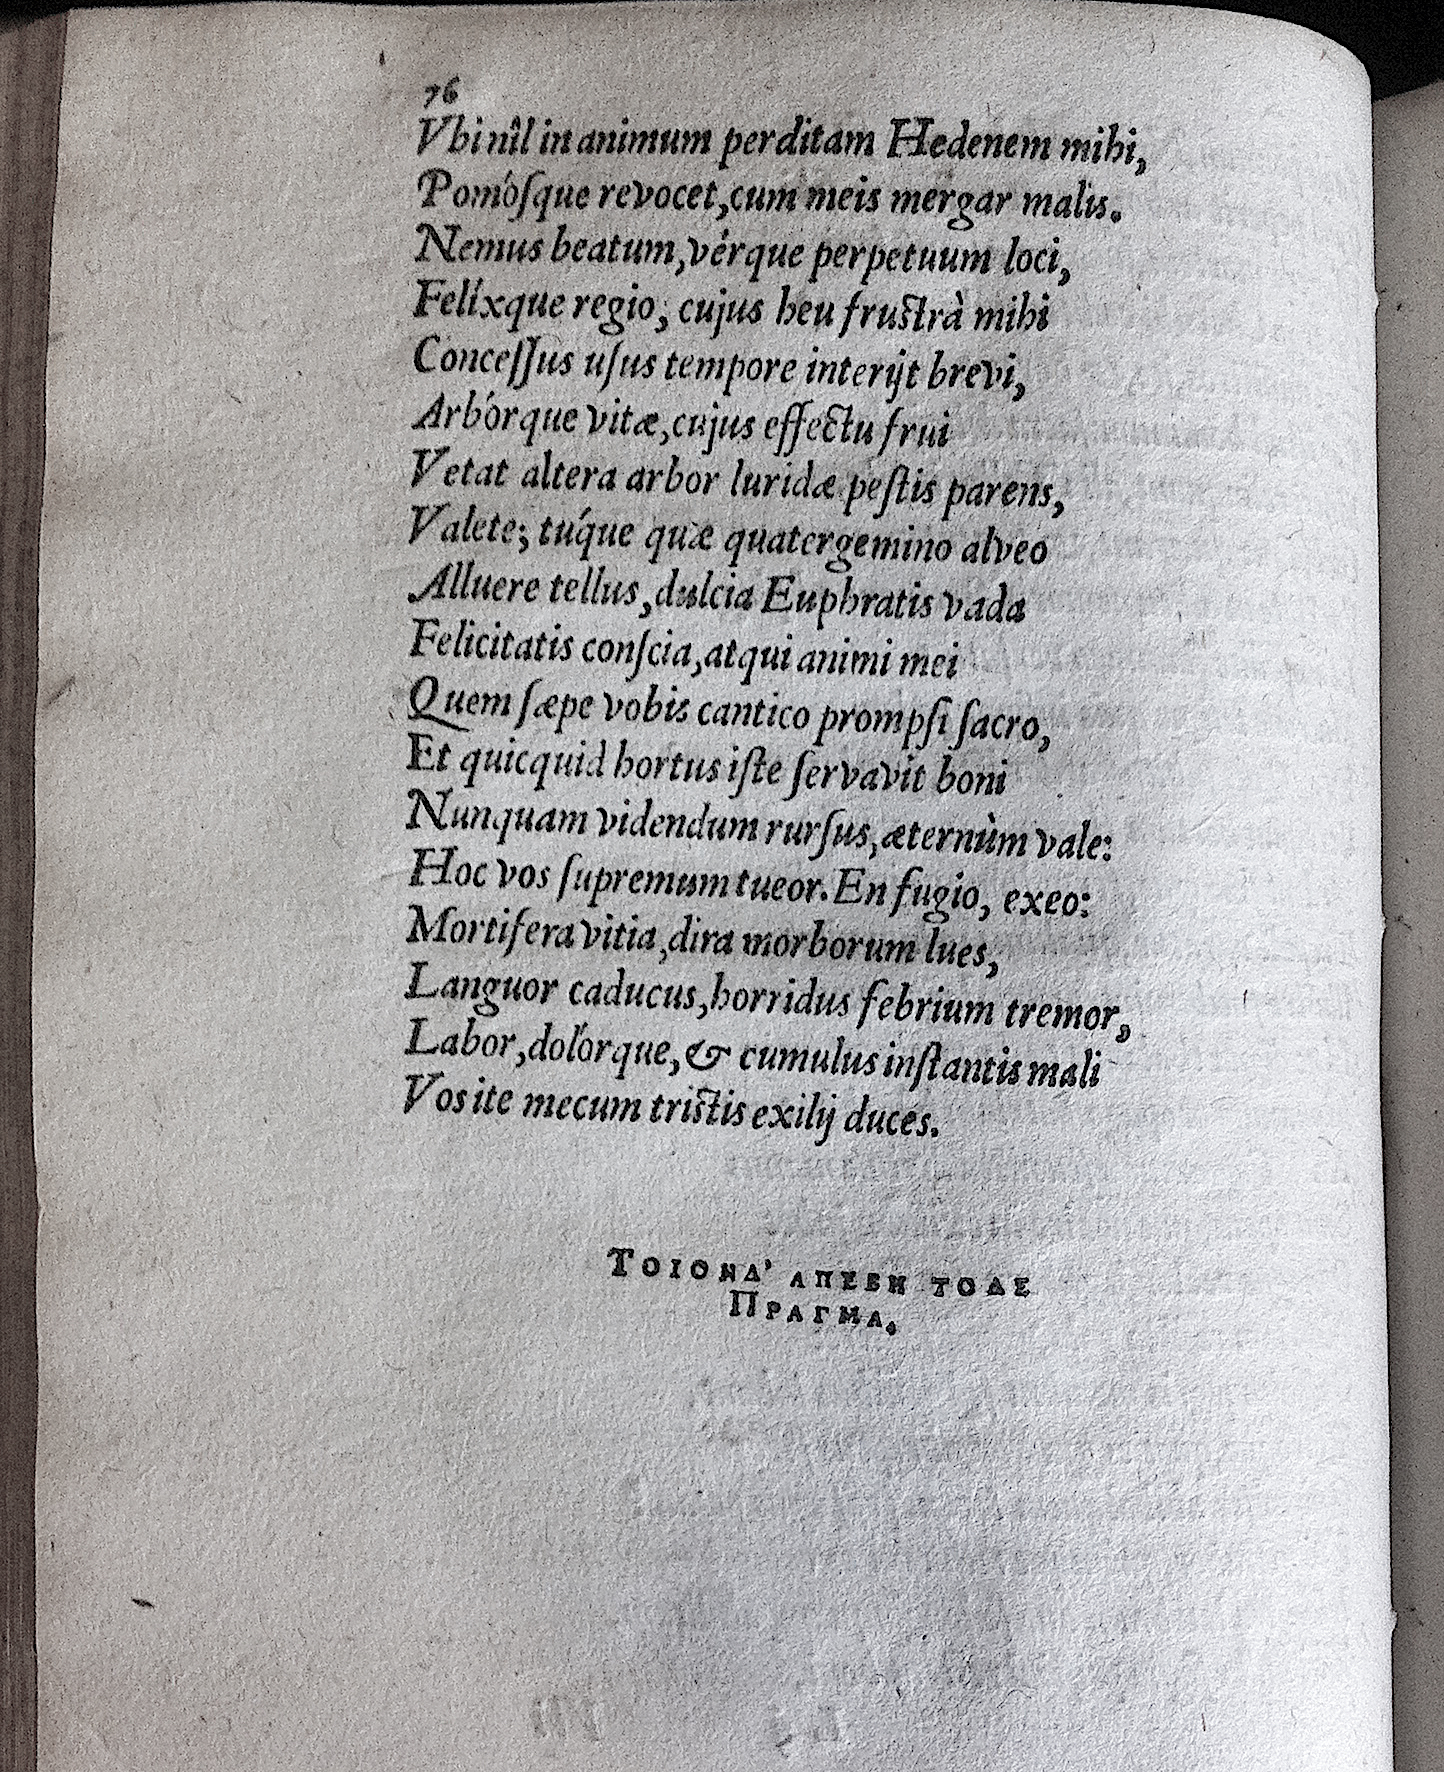 76
Vbi nîl in animum perditam Hedenem mihi,
Pomósque revocet, cum meis mergar malis.
Nemus beatum, vérque perpetuum loci,
Felíxque regio, cujus heu frustrà mihi
Conceſſus uſus tempore interijt brevi,
Arbórque vitæ, cujus effectu frui
Vetat altera arbor luridæ peſtis parens,
Valete; túque quæ quatergemino alveo
Alluere tellus, dulcia Euphratis vada
Felicitatis conſcia, atqui animi mei
Quem ſæpe vobis cantico prompſi ſacro,
Et quicquid hortus iſte ſervavit boni
Nunquam videndum rurſus, æternùm vale:
Hoc vos ſupremum tueor. En fugio, exeo:
Mortifera vitia, dira morborum lues,
Languor caducus, horridus febrium tremor,
Labor, dolórque, & cumulus inſtantis mali
Vos ite mecum tristis exilij duces.
ΤΟΙΟΝΔ' ΑΠΕΒΗ ΤΟΔΕ
ΠΡΑΓΜΑ.